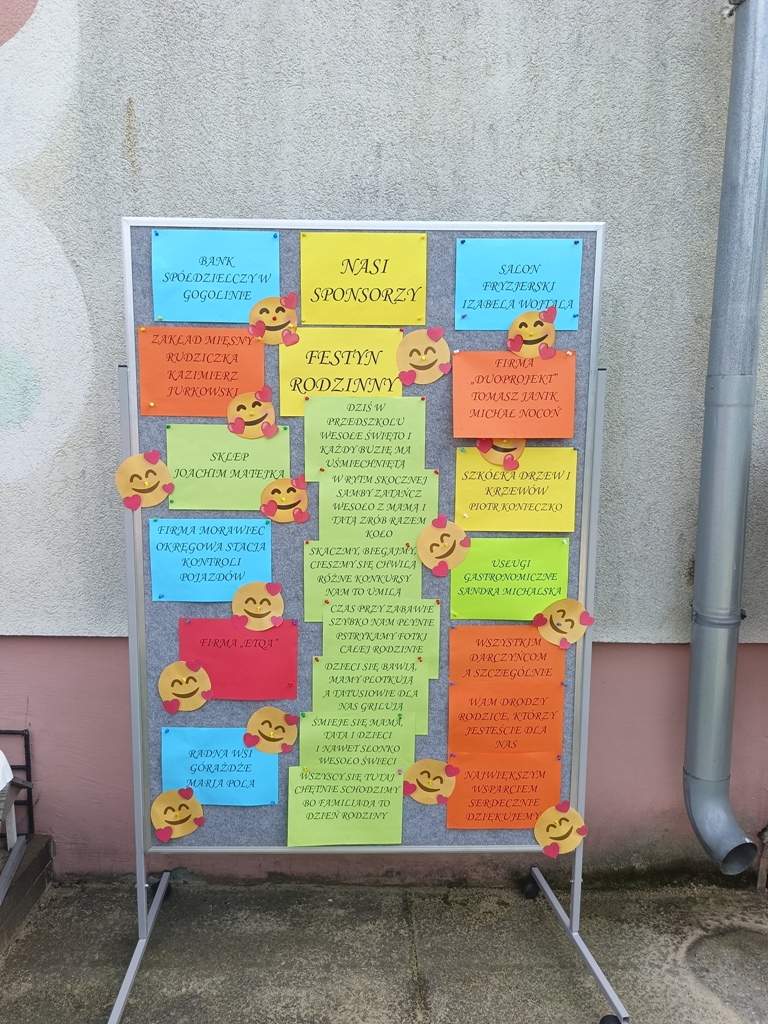 NASI
SPONSORZY
FESTYN
RODZINNY
BANK
SPÓŁDZIELCZY W
GOGOLINIE
ZAKŁAD MIĘSNY
RUDZICZKA
KAZIMIERZ
JURKOWSKI
SKLEP
JOACHIM MATEJKA
FIRMA MORAWIEC
OKRĘGOWA STACJA
KONTROLI
POJAZDÓW
FIRMA „ETQA”
RADNA WSI
GÓRAŻDŻE
MARIA POLA
DZIŚ W
PRZEDSZKOLU
WESOŁE ŚWIĘTO I
KAŻDY BUZIĘ MA
UŚMIECHNIĘTĄ
W RYTM SKOCZNEJ
SAMBY ZATAŃCZ
WESOŁO Z MAMĄ I
TATĄ ZRÓB RAZEM
KOŁO
SKACZMY, BIEGAJMY,
CIESZMY SIĘ CHWILĄ
RÓŻNE KONKURSY
NAM TO UMILĄ
CZAS PRZY ZABAWIE
SZYBKO NAM PŁYNIE
PSTRYKAMY FOTKI
CAŁEJ RODZINIE
DZIECI SIĘ BAWIĄ,
MAMY PLOTKUJĄ
A TATUSIOWIE DLA
NAS GRILUJĄ
ŚMIEJE SIĘ MAMA,
TATA I DZIECI
I NAWET SŁONKO
WESOŁO ŚWIECI
WSZYSCY SIĘ TUTAJ
CHĘTNIE SCHODZIMY
BO FAMILIADA TO
DZIEŃ RODZINY
SALON
FRYZJERSKI
IZABELA WOJTALA
FIRMA
„DUOPROJEKT”
TOMASZ JANIK
MICHAŁ NOCOŃ
SZKÓŁKA DRZEW I
KRZEWÓW
PIOTR KONIECZKO
USŁUGI
GASTRONOMICZNE
SANDRA MICHALSKA
WSZYSTKIM
DARCZYŃCOM
A SZCZEGÓLNIE
WAM DRODZY
RODZICE, KTÓRZY
JESTEŚCIE DLA
NAS
NAJWIĘKSZYM
WSPARCIEM
SERDECZNIE
DZIĘKUJEMY